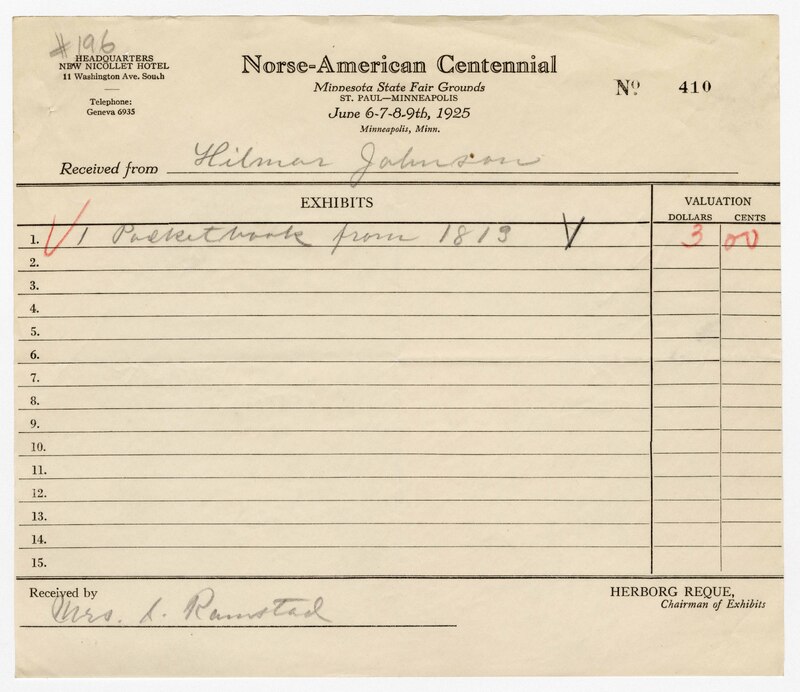 #196
HEADQUARTERS
NEW NICOLLET HOTEL
11 Washington Ave. South
Telephone:
Geneva 6935
Norse-American Centennial
Minnesota State Fair Grounds
ST. PAUL—MINNEAPOLIS
June 6-7-8-9th, 1925
Minneapolis, Minn.
No 410
Received from Hilmar Johnson
EXHIBITS VALUATION
DOLLARS CENTS
1. V 1 Pocketbook from 1813 V 3 00
2.
3.
4.
5.
6.
7.
8.
9.
10.
11.
12.
13.
14.
15.
Received by
Mrs. A. Ramstad
HERBORG REQUE,
Chairman of Exhibits